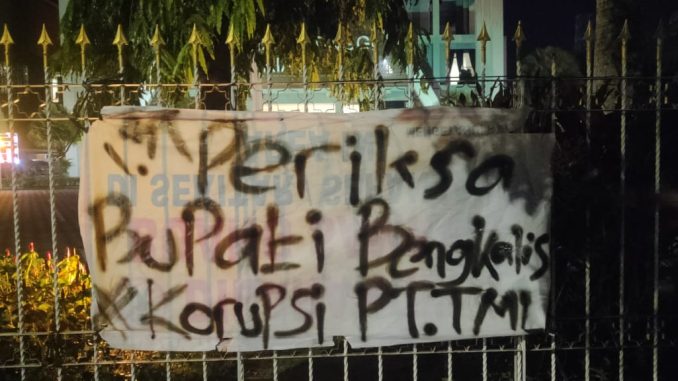 Periksa
Bupati Bengkalis
Korupsi PT.TML